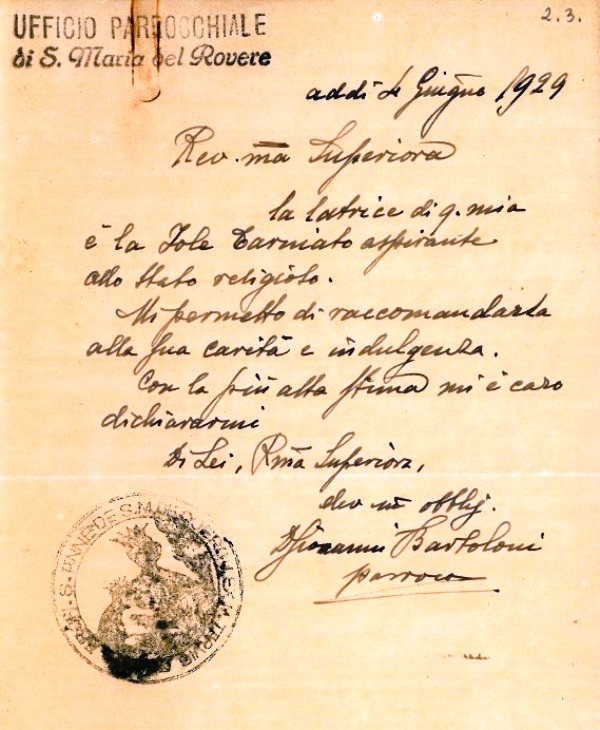 UFFICIO PARROCCHIALE
di S. Maria del Rovere
2.3.
addì 4 Giugno 1929
Rev.ma Superiora
la latrice di q. mia
è la Iole Tarniato aspirante
allo stato religioso.
Mi permetto di raccomandarla
alla Sua carità e indulgenza.
Con la più alta stima mi è caro
dichiararmi
Di Lei, Rma Superiora,
dev mo obblig.
D Giovanni Bartoloni
parroco